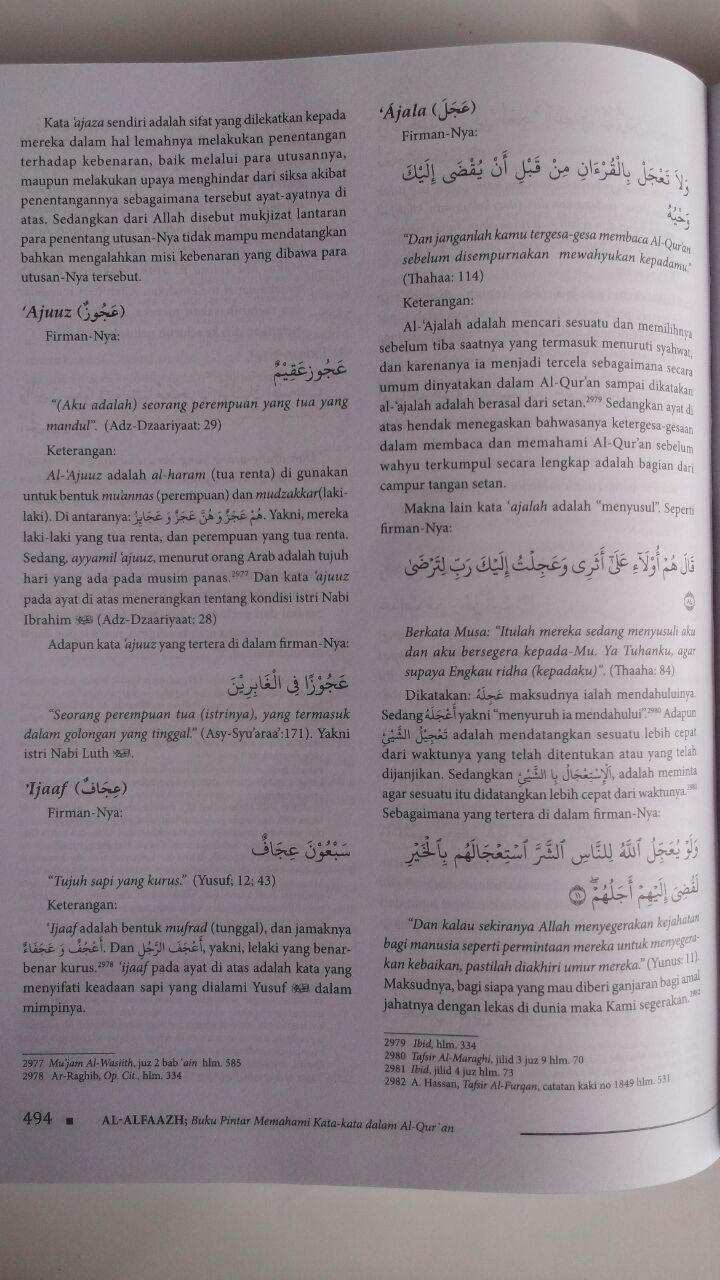 Kata 'ajaza sendiri adalah sifat yang dilekatkan kepada
mereka dalam hal lemahnya melakukan penentangan
terhadap kebenaran, baik melalui para utusannya,
maupun melakukan upaya menghindar dari siksa akibat
penentangannya sebagaimana tersebut ayat-ayatnya di
atas. Sedangkan dari Allah disebut mukjizat lantaran
para penentang utusan-Nya tidak mampu mendatangkan
bahkan mengalahkan misi kebenaran yang dibawa para
utusan-Nya tersebut.
'Ajuuz (عَجُوزٌ)
Firman-Nya:
عَجُوزعَقِيْمٌ
"(Aku adalah) seorang perempuan yang tua yang
mandul". (Adz-Dzaariyaat: 29)
Keterangan:
Al-'Ajuuz adalah al-haram (tua renta) di gunakan
untuk bentuk mu'annas (perempuan) dan mudzakkar(laki-
laki). Di antaranya: هُمْ عَجَزٌ وَ هُنَّ عَجَزٌ وَ عَجَايِزُ. Yakni, mereka
laki-laki yang tua renta, dan perempuan yang tua renta.
Sedang, ayyamil 'ajuuz, menurut orang Arab adalah tujuh
hari yang ada pada musim panas.2977 Dan kata 'ajuuz
pada ayat di atas menerangkan tentang kondisi istri Nabi
Ibrahim (Adz-Dzaariyaat: 28)
Adapun kata 'ajuuz yang tertera di dalam firman-Nya:
عَجُوْزًا فِي الْغَابِرِيْنَ
"Seorang perempuan tua (istrinya), yang termasuk
dalam golongan yang tinggal." (Asy-Syu'araa':171). Yakni
istri Nabi Luth .
'Ijaaf (عِجَافٌ)
Firman-Nya:
سَبْعُوْنَ عِجَافٌ
"Tujuh sapi yang kurus." (Yusuf; 12; 43)
Keterangan:
'Ijaaf adalah bentuk mufrad (tunggal), dan jamaknya
أَعْجُفٌ وَ عَجَفَاءُ. Dan أَعْجَفَ الرَّجُلِ, yakni, lelaki yang benar-
benar kurus.2978 'ijaaf pada ayat di atas adalah kata yang
menyifati keadaan sapi yang dialami Yusuf dalam
mimpinya.
2977 Mu'jam Al-Wasiith, juz 2 bab 'ain hlm. 585
2978 Ar-Raghib, Op. Cit., hlm. 334
'Ájala (عَجَلَ)
Firman-Nya:
وَلاَ تَعْجَلْ بِالْقُرْءَانِ مِنْ قَبْلِ أَنْ يُقْضَى إِلَيْكَ
وَحْيُهُ
"Dan janganlah kamu tergesa-gesa membaca Al-Qur'an
sebelum disempurnakan mewahyukan kepadamu."
(Thahaa: 114)
Keterangan:
Al-'Ajalah adalah mencari sesuatu dan memilihnya
sebelum tiba saatnya yang termasuk menuruti syahwat,
dan karenanya ia menjadi tercela sebagaimana secara
umum dinyatakan dalam Al-Qur'an sampai dikatakan
al-'ajalah adalah berasal dari setan.2979 Sedangkan ayat di
atas hendak menegaskan bahwasanya ketergesa-gesaan
dalam membaca dan memahami Al-Qur'an sebelum
wahyu terkumpul secara lengkap adalah bagian dari
campur tangan setan.
Makna lain kata 'ajalah adalah "menyusul". Seperti
firman-Nya:
قَالَ هُمْ أُوْلَآءِ عَلَىٰٓ أَثَرِى وَعَجِلْتُ إِلَيْكَ رَبِّ لِتَرْضَىٰ
٨٤
Berkata Musa: "Itulah mereka sedang menyusuli aku
dan aku bersegera kepada-Mu. Ya Tuhanku, agar
supaya Engkau ridha (kepadaku)". (Thaaha: 84)
Dikatakan: عَجِلَهُ maksudnya ialah mendahuluinya.
Sedang أَعْجَلَهُ yakni "menyuruh ia mendahului".2980 Adapun
تَعْجِيْلُ الشَّيْئِ adalah mendatangkan sesuatu lebih cepat
dari waktunya yang telah ditentukan atau yang telah
dijanjikan. Sedangkan اَلْإِسْتِعْجَالُ بِا الشَّيْئِ, adalah meminta
agar sesuatu itu didatangkan lebih cepat dari waktunya.2981
Sebagaimana yang tertera di dalam firman-Nya:
وَلَوْ يُعَجِّلُ ٱللَّهُ لِلنَّاسِ ٱلشَّرَّ ٱسْتِعْجَالَهُم بِٱلْخَيْرِ
لَقُضِىَ إِلَيْهِمْ أَجَلُهُمْ ۖ ١١
"Dan kalau sekiranya Allah menyegerakan kejahatan
bagi manusia seperti permintaan mereka untuk menyegera-
kan kebaikan, pastilah diakhiri umur mereka." (Yunus: 11).
Maksudnya, bagi siapa yang mau diberi ganjaran bagi amal
jahatnya dengan lekas di dunia maka Kami segerakan.2982
2979 Ibid, hlm. 334
2980 Tafsir Al-Maraghi, jilid 3 juz 9 hlm. 70
2981 Ibid, jilid 4 juz hlm. 73
2982 A. Hassan, Tafsir Al-Furqan, catatan kaki no 1849 hlm. 531
494 ■ AL-ALFAAZH; Buku Pintar Memahami Kata-kata dalam Al-Qur'an